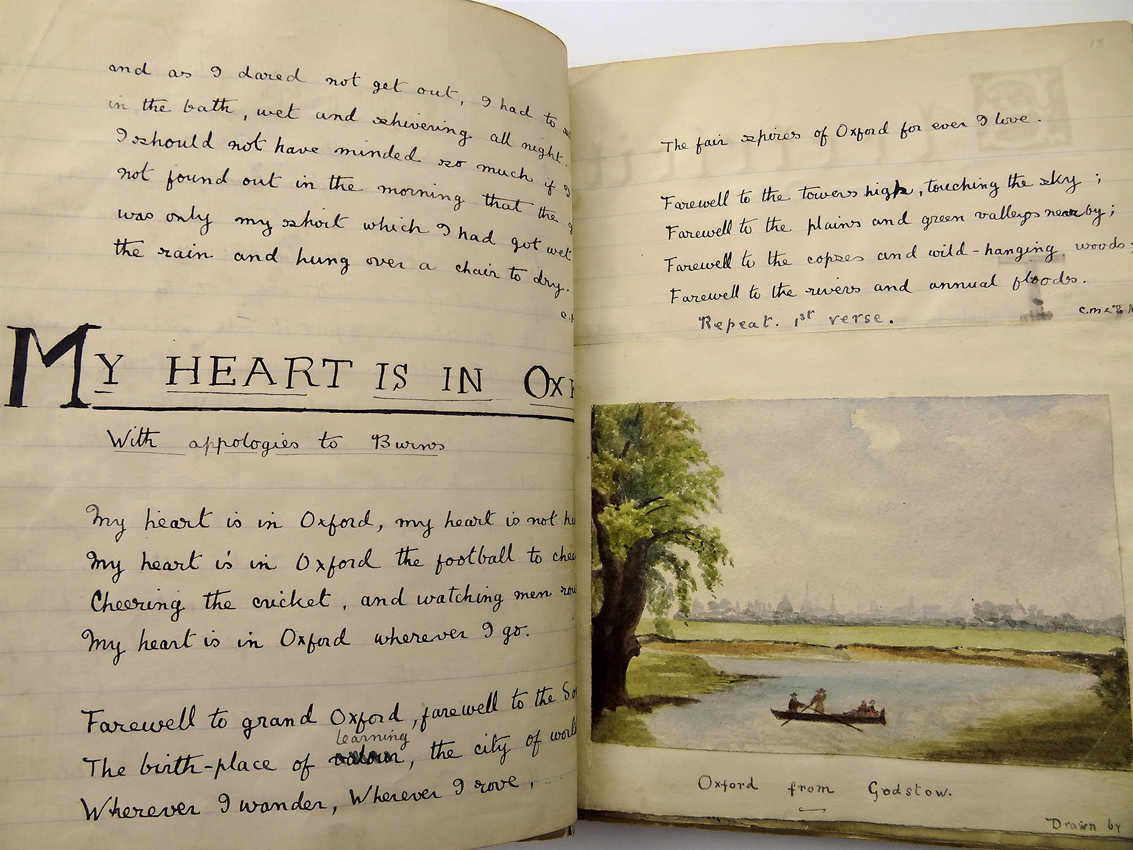 and as I dared not get out, I had to
in the bath, wet and shivering all night.
I should not have minded so much if I
not found out in the morning that the
was only my shirt which I had got wet
the rain and hung over a chair to dry.
My HEART IS IN OX
With appologies to Burns
My heart is in Oxford, my heart is not
My heart is in Oxford the football to
Cheering the cricket, and watching men
My heart is in Oxford wherever I go.
Farewell to grand Oxford, farewell to the
learning
The birth-place of valour, the city of
Wherever I wander, Wherever I rove,
13
The fair spires of Oxford for ever I love.
Farewell to the towers high, touching the sky;
Farewell to the plains and green valleys near by;
Farewell to the copses and wild-hanging woods;
Farewell to the rivers and annual floods.
Repeat. 1st verse.
Oxford from Godstow.
Drawn by